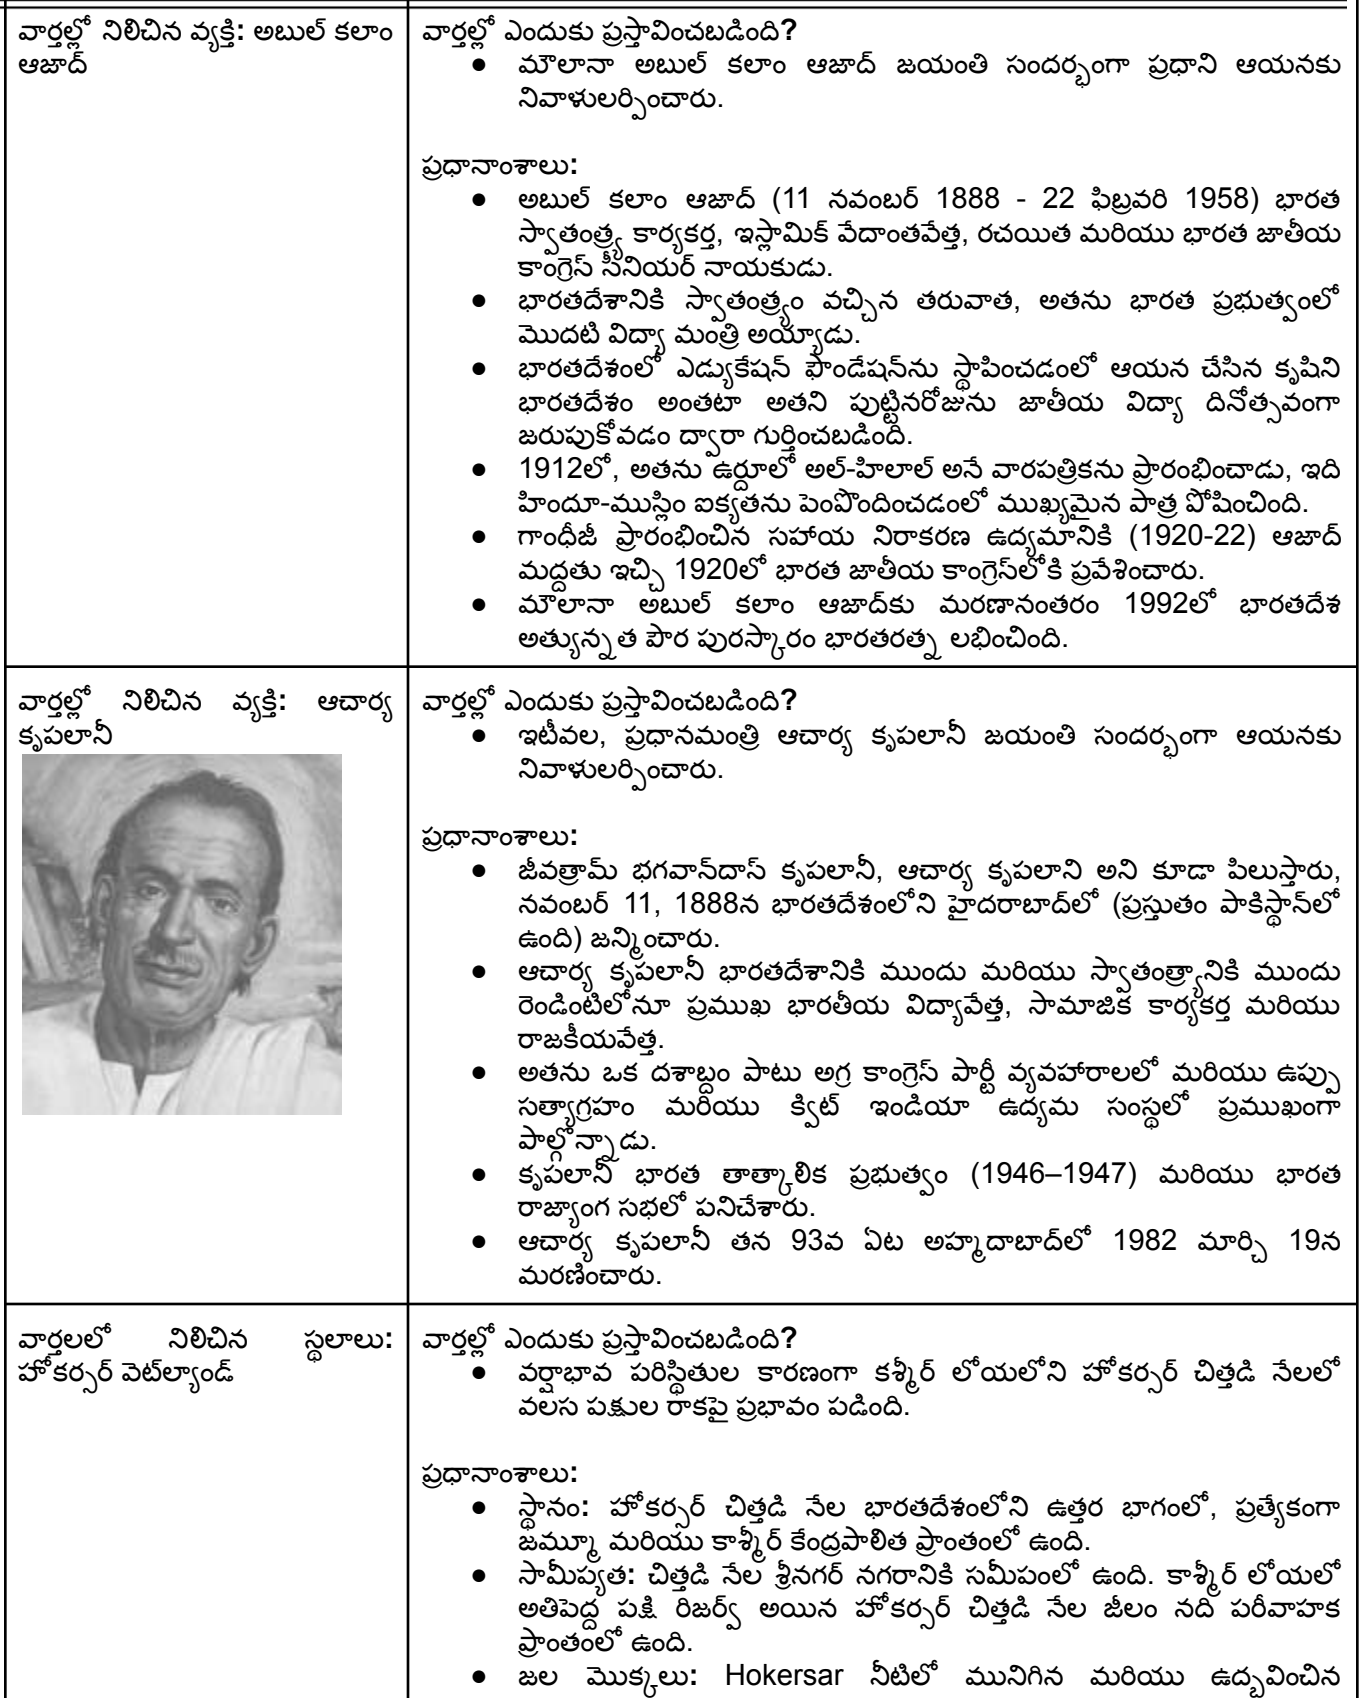 వార్తల్లో నిలిచిన వ్యక్తి: అబుల్ కలాం
ఆజాద్
వార్తల్లో ఎందుకు ప్రస్తావించబడింది?
● మౌలానా అబుల్ కలాం ఆజాద్ జయంతి సందర్భంగా ప్రధాని ఆయనకు
నివాళులర్పించారు.
ప్రధానాంశాలు:
● అబుల్ కలాం ఆజాద్ (11 నవంబర్ 1888 - 22 ఫిబ్రవరి 1958) భారత
స్వాతంత్ర్య కార్యకర్త, ఇస్లామిక్ వేదాంతవేత్త, రచయిత మరియు భారత జాతీయ
కాంగ్రెస్ సీనియర్ నాయకుడు.
● భారతదేశానికి స్వాతంత్ర్యం వచ్చిన తరువాత, అతను భారత ప్రభుత్వంలో
మొదటి విద్యా మంత్రి అయ్యాడు.
● భారతదేశంలో ఎడ్యుకేషన్ ఫౌండేషన్‌ను స్థాపించడంలో ఆయన చేసిన కృషిని
భారతదేశం అంతటా అతని పుట్టినరోజును జాతీయ విద్యా దినోత్సవంగా
జరుపుకోవడం ద్వారా గుర్తించబడింది.
● 1912లో, అతను ఉర్దూలో అల్-హిలాల్ అనే వారపత్రికను ప్రారంభించాడు, ఇది
హిందూ-ముస్లిం ఐక్యతను పెంపొందించడంలో ముఖ్యమైన పాత్ర పోషించింది.
● గాంధీజీ ప్రారంభించిన సహాయ నిరాకరణ ఉద్యమానికి (1920-22) ఆజాద్
మద్దతు ఇచ్చి 1920లో భారత జాతీయ కాంగ్రెస్‌లోకి ప్రవేశించారు.
● మౌలానా అబుల్ కలాం ఆజాద్‌కు మరణానంతరం 1992లో భారతదేశ
అత్యున్నత పౌర పురస్కారం భారతరత్న లభించింది.
వార్తల్లో నిలిచిన వ్యక్తి: ఆచార్య
కృపలానీ
వార్తల్లో ఎందుకు ప్రస్తావించబడింది?
● ఇటీవల, ప్రధానమంత్రి ఆచార్య కృపలానీ జయంతి సందర్భంగా ఆయనకు
నివాళులర్పించారు.
ప్రధానాంశాలు:
● జీవత్రామ్ భగవాన్‌దాస్ కృపలానీ, ఆచార్య కృపలాని అని కూడా పిలుస్తారు,
నవంబర్ 11, 1888న భారతదేశంలోని హైదరాబాద్‌లో (ప్రస్తుతం పాకిస్థాన్‌లో
ఉంది) జన్మించారు.
● ఆచార్య కృపలానీ భారతదేశానికి ముందు మరియు స్వాతంత్ర్యానికి ముందు
రెండింటిలోనూ ప్రముఖ భారతీయ విద్యావేత్త, సామాజిక కార్యకర్త మరియు
రాజకీయవేత్త.
● అతను ఒక దశాబ్దం పాటు అగ్ర కాంగ్రెస్ పార్టీ వ్యవహారాలలో మరియు ఉప్పు
సత్యాగ్రహం మరియు క్విట్ ఇండియా ఉద్యమ సంస్థలో ప్రముఖంగా
పాల్గొన్నాడు.
● కృపలానీ భారత తాత్కాలిక ప్రభుత్వం (1946–1947) మరియు భారత
రాజ్యాంగ సభలో పనిచేశారు.
● ఆచార్య కృపలానీ తన 93వ ఏట అహ్మదాబాద్‌లో 1982 మార్చి 19న
మరణించారు.
వార్తలలో నిలిచిన స్థలాలు:
హోకర్సర్ వెట్‌ల్యాండ్
వార్తల్లో ఎందుకు ప్రస్తావించబడింది?
● వర్షాభావ పరిస్థితుల కారణంగా కశ్మీర్ లోయలోని హోకర్సర్ చిత్తడి నేలలో
వలస పక్షుల రాకపై ప్రభావం పడింది.
ప్రధానాంశాలు:
● స్థానం: హోకర్సర్ చిత్తడి నేల భారతదేశంలోని ఉత్తర భాగంలో, ప్రత్యేకంగా
జమ్మూ మరియు కాశ్మీర్ కేంద్రపాలిత ప్రాంతంలో ఉంది.
● సామీప్యత: చిత్తడి నేల శ్రీనగర్ నగరానికి సమీపంలో ఉంది. కాశ్మీర్ లోయలో
అతిపెద్ద పక్షి రిజర్వ్ అయిన హోకర్సర్ చిత్తడి నేల జీలం నది పరీవాహక
ప్రాంతంలో ఉంది.
● జల మొక్కలు: Hokersar నీటిలో మునిగిన మరియు ఉద్భవించిన